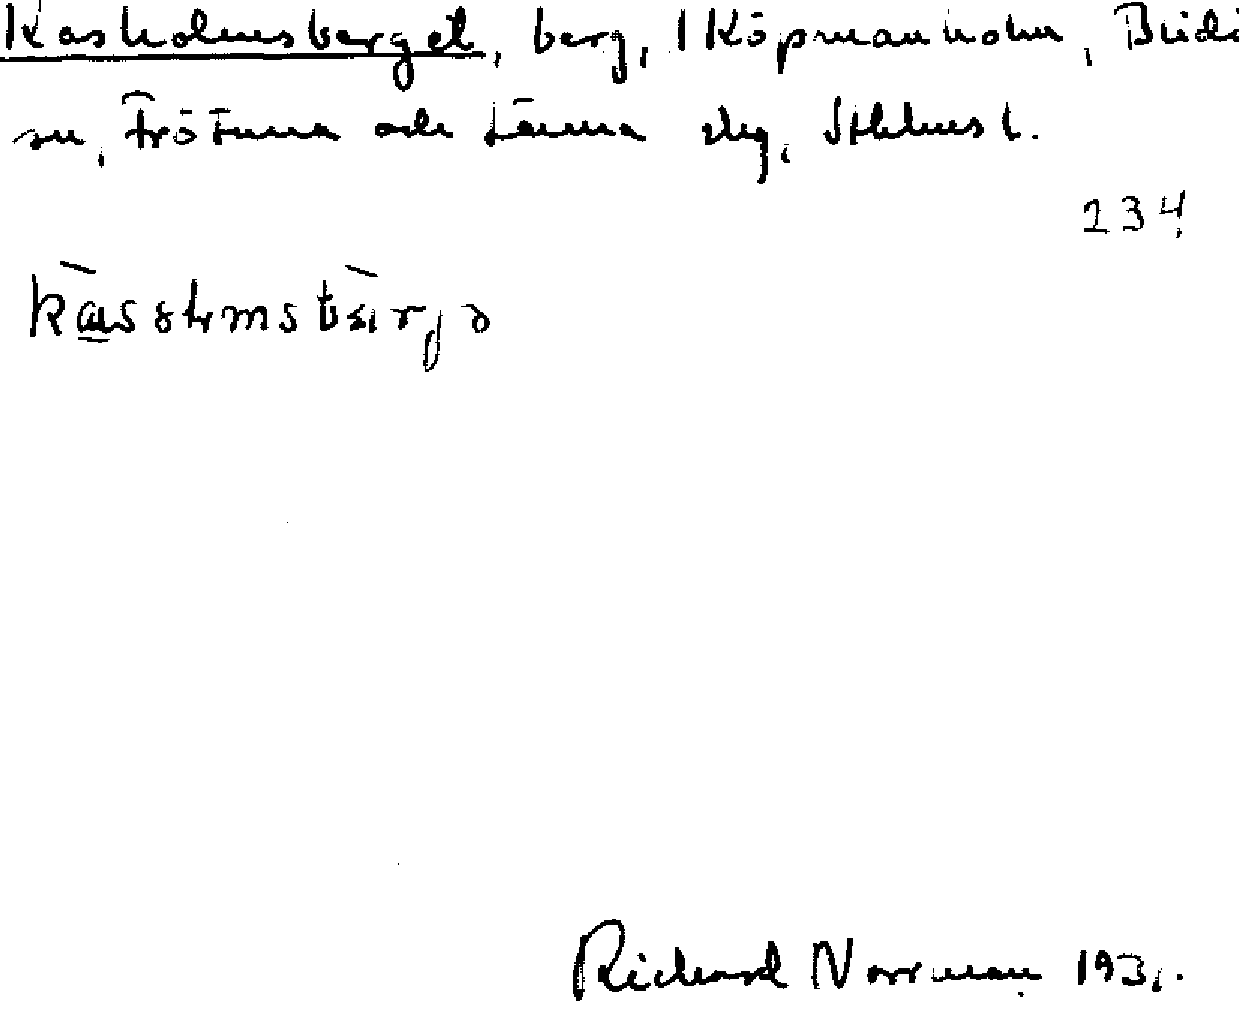 Kasholmsberget, berg, 1 Köpmanholm, Blidö
sn, Frötuna och Länna slg, Sthlms l.
234
Richard Norrman 1931.